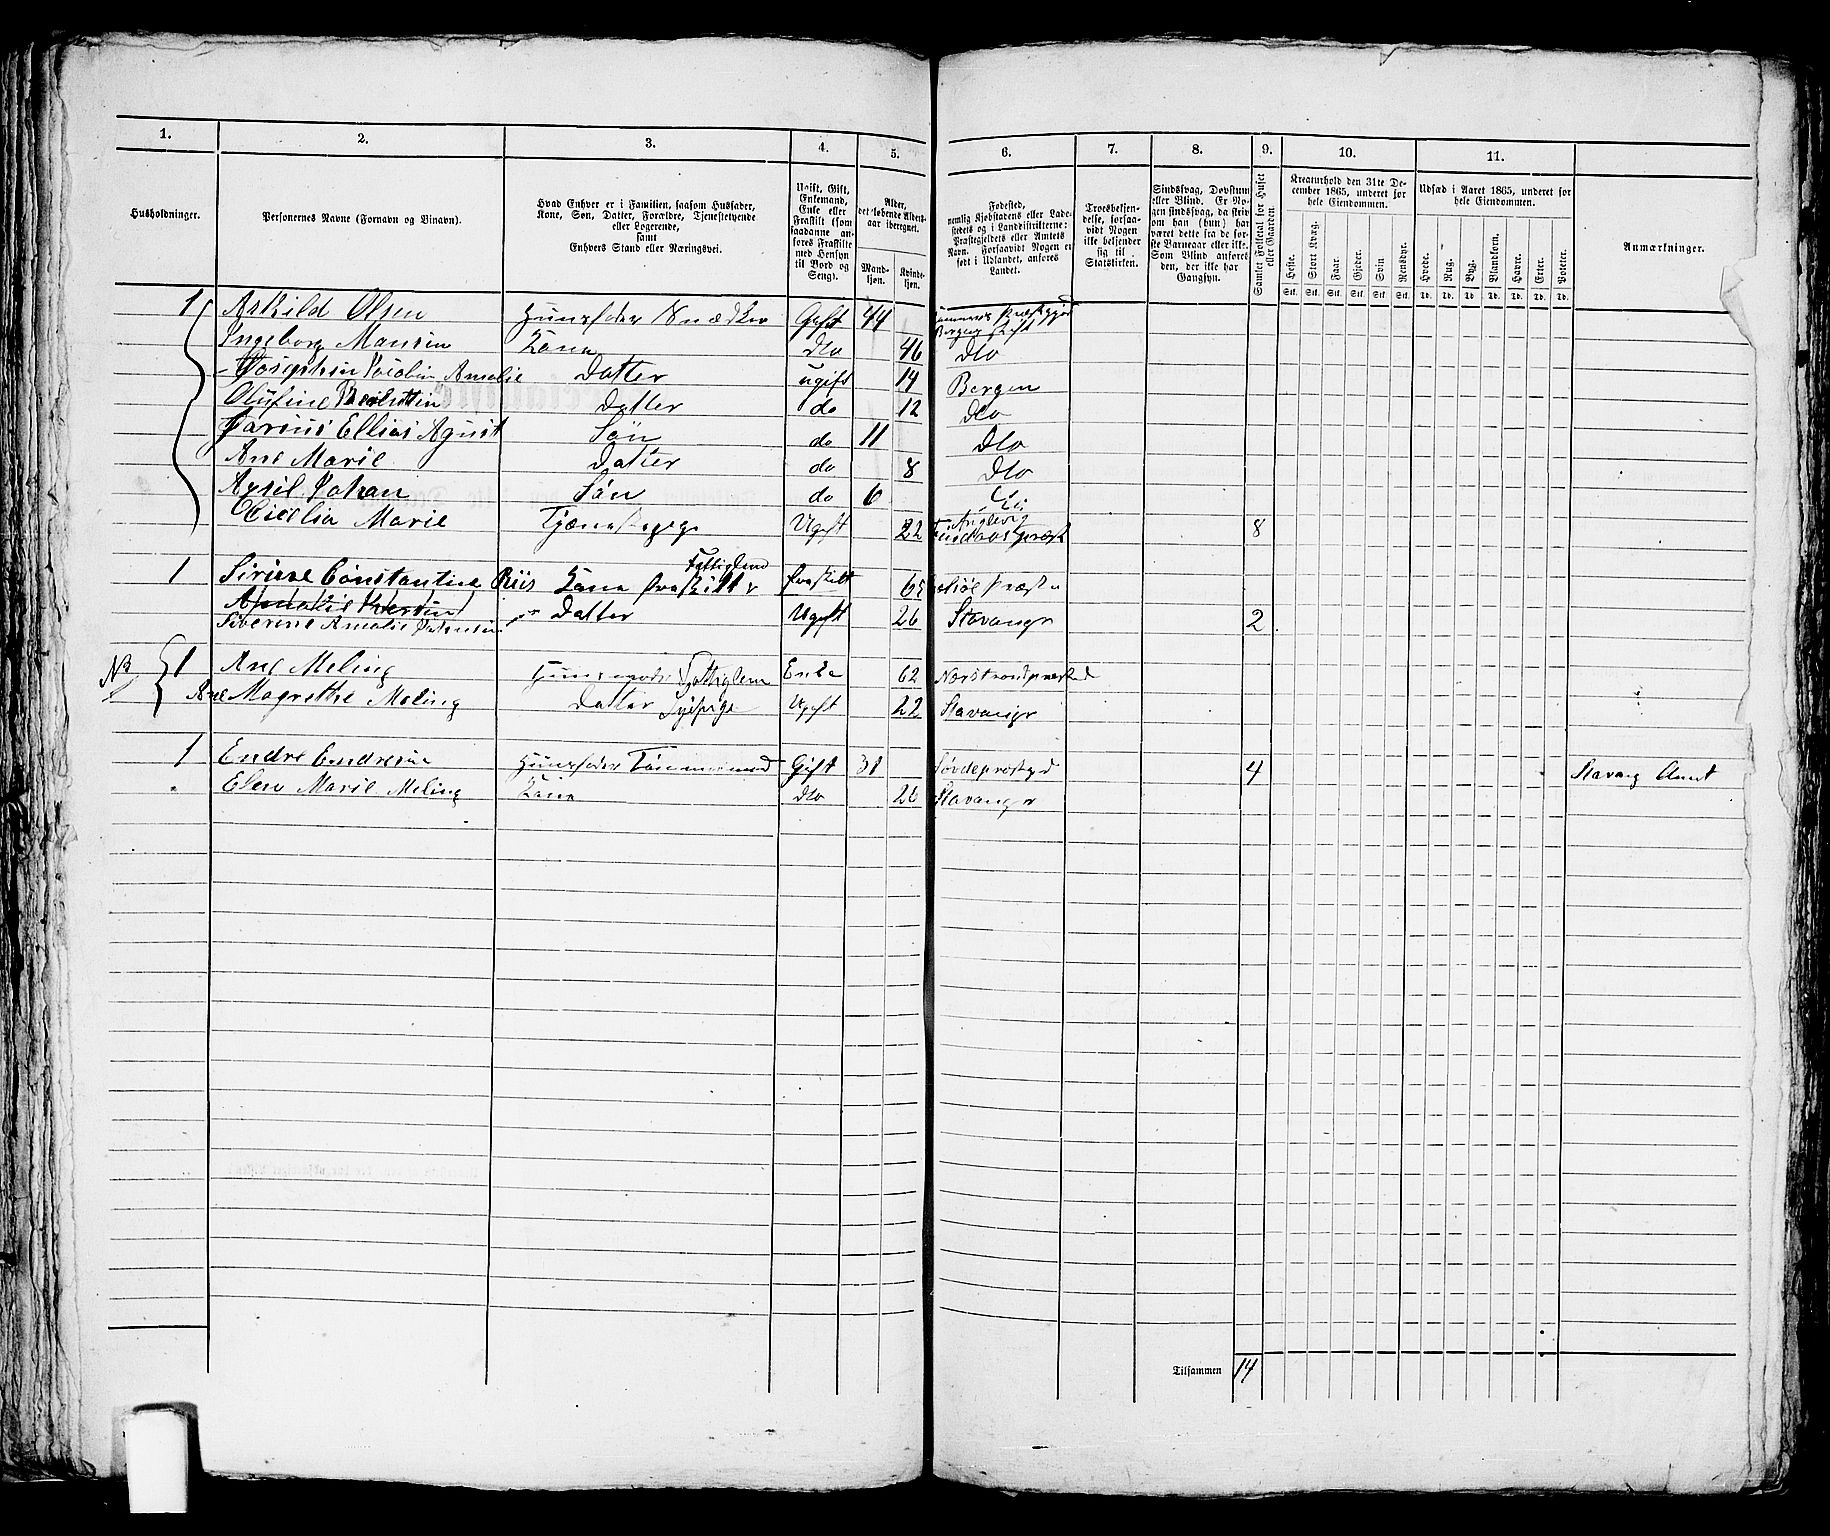 1. 2. 3. 4. 5. 6. 7. 8. 9. 10. 11.
Husholdninger.
Personernes Navne (Fornavn og Binavn).
Hvad Enhver er i Familien, saasom Husfader,
Kone, Søn, Datter, Forældre, Tjenestetyende
eller Logerende,
samt
Enhvers Stand eller Næringsvei.
Ugift, Gift,
Enkemand,
Enke eller
Fraskilt (som
saadanne an-
føres Fraskilte
med Hensyn
til Bord og
Seng).
Alder,
det løbende Alders-
aar iberegnet.
Mand-
kjøn.
Kvinde-
kjøn.
Fødested,
nemlig Kjøbstadens eller Lade-
stedets og i Landdistrikterne:
Præstegjeldets eller Amtets
Navn. Forsaavidt Nogen er
født i Udlandet, anføres
Landet.
Troesbekjen-
delse, forsaa-
vidt Nogen
ikke bekjender
sig til
Statskirken.
Sindssvag, Døvstum
eller Blind. Er No-
gen sindssvag, da skriv
om han (hun) har
været dette fra de før-
ste Barneaar eller ikke.
Som Blind anføres
den, der ikke har
Gangsyn.
Samlet Folketal for Huset
eller Gaarden.
Kreaturhold den 31te De-
cember 1865, underet for
hele Eiendommen.
Heste. Stort Kvæg. Faar. Gjeder. Svin. Rensdyr.
Stk. Stk. Stk. Stk. Stk. Stk.
Udsæd i Aaret 1865, underet for
hele Eiendommen.
Hvede. Rug. Byg. Blandkorn. Havre. Erter. Poteter.
Td. Td. Td. Td. Td. Td. Td.
Anmærkninger.
1 Askild Olsen Huusfader Snædker Gift 44 Præstegjæd
Bergens Stift
Ingeborg Monsen Kone Do 46 Do
Josephin Jacobin Amalie Datter ugift 14 Bergen
Olufine Datter do 12 Do
Ellias Agust Søn do 11 Do
Ane Marie Datter do 8 Do
Axsil Johan Søn do 6
Cicelia Marie Tjænestepige Ugift 22 8
1 Sirine Constantine Riis Kone fraskilt Fattiglem fraskilt 65
Siverine Amalie Datter Ugift 26 Stavanger 2
NB 1 Ane Meling Huusmoder Fattiglem Enke 62
Ane Magrethe Meling Datter Sypige Ugift 22 Stavanger
1 Endre Endresen Huusfader Tømmermand Gift 31 4 Stavang Amt
Elen Marie Meling Kone Do 26 Stavanger
Tilsammen 14